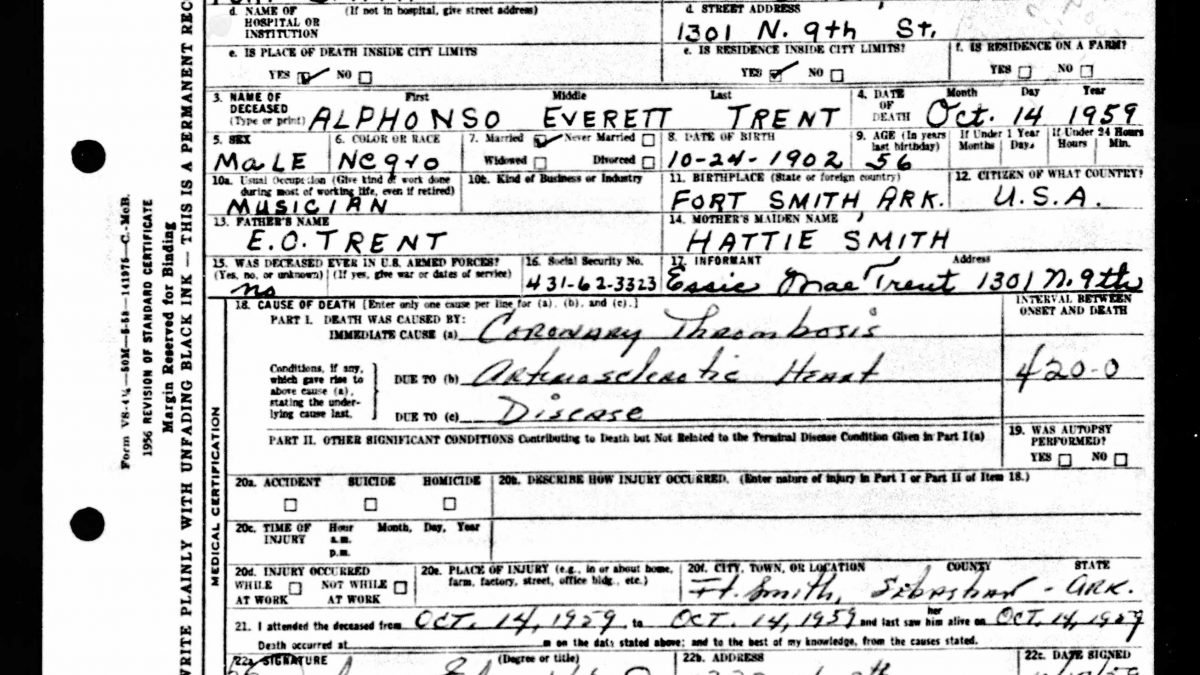 d. NAME OF HOSPITAL OR INSTITUTION (If not in hospital, give street address)
d. STREET ADDRESS
1301 N. 9th St.
e. IS PLACE OF DEATH INSIDE CITY LIMITS
YES NO
e. IS RESIDENCE INSIDE CITY LIMITS?
YES NO
f. IS RESIDENCE ON A FARM?
YES NO
3. NAME OF DECEASED (Type or print)
First Middle Last
ALPHONSO EVERETT TRENT
4. DATE OF DEATH
Month Day Year
Oct. 14 1959
5. SEX
MALE
6. COLOR OR RACE
Negro
7. Married Never Married
Widowed Divorced
8. DATE OF BIRTH
10-24-1902
9. AGE (In years last birthday)
56
If Under 1 Year
Months Days
If Under 24 Hours
Hours Min.
10a. Usual Occupation (Give kind of work done during most of working life, even if retired)
MUSICIAN
10b. Kind of Business or Industry
11. BIRTHPLACE (State or foreign country)
FORT SMITH ARK.
12. CITIZEN OF WHAT COUNTRY?
U.S.A.
13. FATHER'S NAME
E.O. TRENT
14. MOTHER'S MAIDEN NAME
HATTIE SMITH
15. WAS DECEASED EVER IN U.S. ARMED FORCES?
(Yes, no, or unknown) (If yes, give war or dates of service)
no
16. Social Security No.
431-62-3323
17. INFORMANT Address
Essie Mae Trent 1301 N. 9th
18. CAUSE OF DEATH [Enter only one cause per line for (a), (b), and (c).]
INTERVAL BETWEEN ONSET AND DEATH
PART I. DEATH WAS CAUSED BY:
IMMEDIATE CAUSE (a) Coronary Thrombosis
Conditions, if any, which gave rise to above cause (a), stating the underlying cause last.
DUE TO (b) Arteriosclerotic Heart
420-0
DUE TO (c) Disease
PART II. OTHER SIGNIFICANT CONDITIONS Contributing to Death but Not Related to the Terminal Disease Condition Given in Part I(a)
19. WAS AUTOPSY PERFORMED?
YES NO
20a. ACCIDENT SUICIDE HOMICIDE
20b. DESCRIBE HOW INJURY OCCURRED. (Enter nature of injury in Part I or Part II of Item 18.)
20c. TIME OF INJURY
Hour Month, Day, Year
a.m.
p.m.
20d. INJURY OCCURRED
WHILE AT WORK NOT WHILE AT WORK
20e. PLACE OF INJURY (e.g., in or about home, farm, factory, street, office bldg., etc.)
20f. CITY, TOWN, OR LOCATION COUNTY STATE
Ft. Smith, Sebastian - Ark.
21. I attended the deceased from Oct. 14, 1959 to Oct. 14, 1959 and last saw her him alive on Oct. 14, 1959
Death occurred at m on the date stated above; and to the best of my knowledge, from the causes stated.
22a SIGNATURE (Degree or title)
22b. ADDRESS
22c. DATE SIGNED
MEDICAL CERTIFICATION
WRITE PLAINLY WITH UNFADING BLACK INK — THIS IS A PERMANENT REC
Margin Reserved for Binding
1956 REVISION OF STANDARD CERTIFICATE